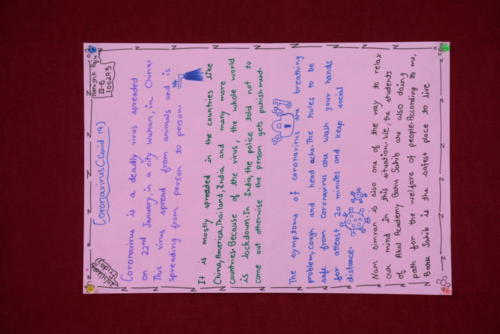 Coronavirus (Covid 19)
III-B
100293
Coronavirus is a deadly virus spreaded
on 22nd January, in a city Wuhan, in China.
This virus spread from animals and is
spreading from person to person.
It is mostly spreaded in the countries like
China, America, Thailand, India and many more
countries. Because of the virus, the whole world
is lockdown. In India the police told not to
come out otherwise the person gets punishment.
The symptoms of coronavirus are breathing
problem, cough and head ache. The rules to be
safe from coronavirus are wash your hands
for atleast 20 minutes and keep social
distance.
Nam Simran is also one of the way to relax
our mind in this situation. We, the students
of Akal Academy Baru Sahib are also doing
path for the welfare of people. According to me,
Baru Sahib is the safest place to live